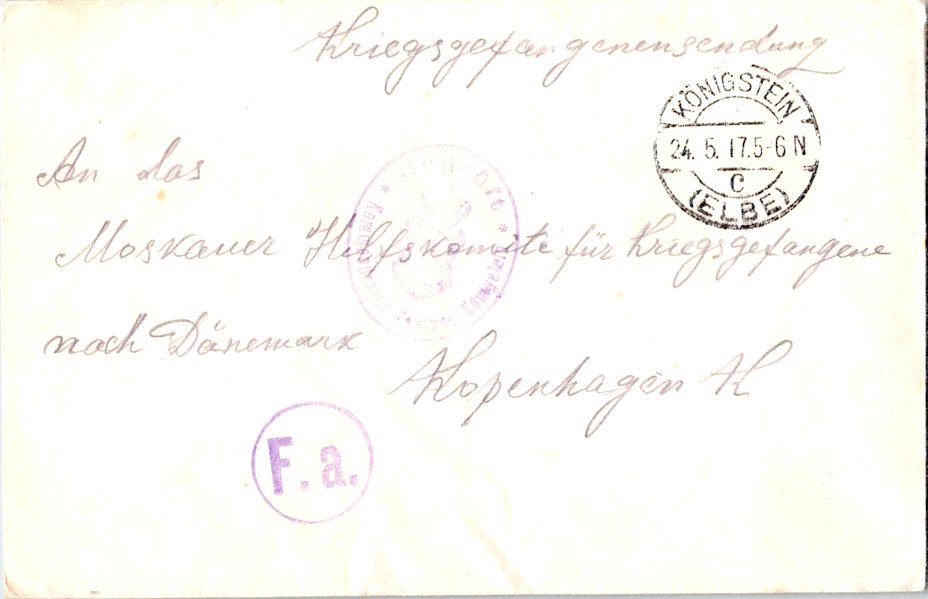 Kriegsgefangenensendung
KÖNIGSTEIN
24. 5. 17. 5-6 N
c
(ELBE)
An das
Moskauer Hilfskomite für Kriegsgefangene
nach Dänemark
Kopenhagen K
Festung Königstein
F. a.